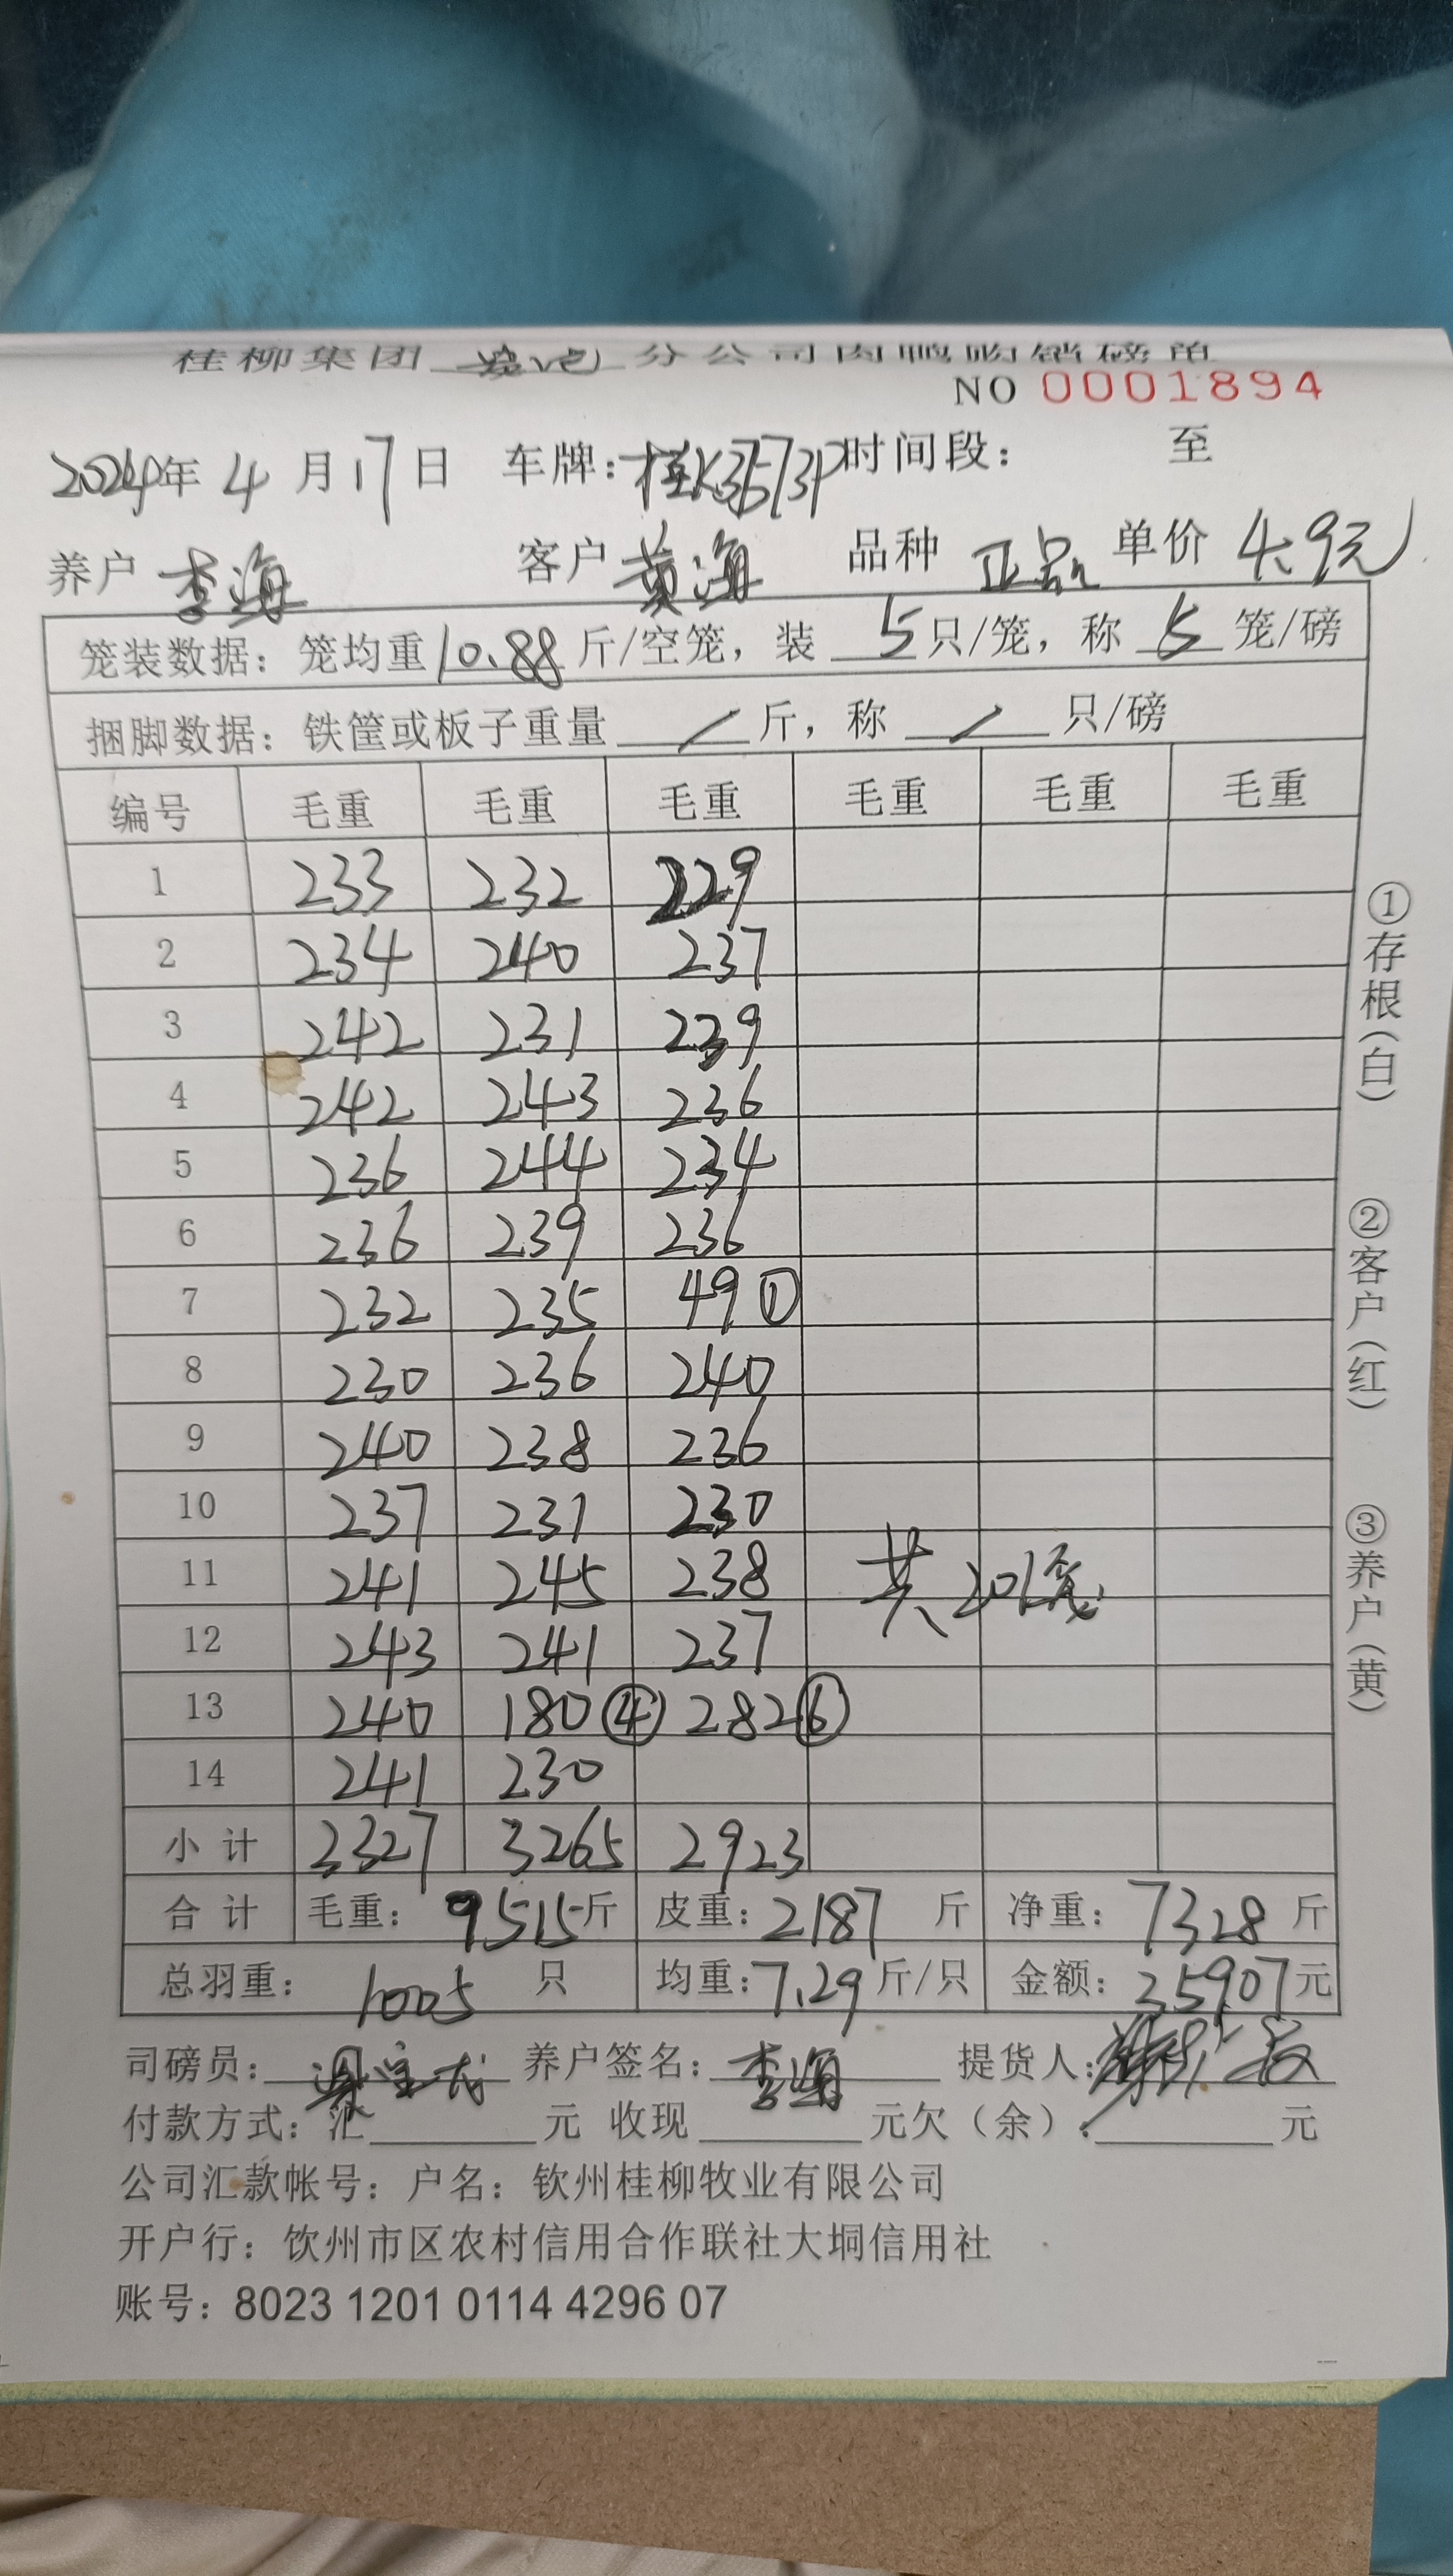 桂柳集团 分公司肉鸭购销磅单
NO 0001894
2024年 4 月 17 日 车牌: 桂K3573P 时间段: 至
养户 李海 客户 黄海 品种 正品 单价 4.9元
笼装数据: 笼均重 10.88 斤/空笼, 装 5 只/笼, 称 5 笼/磅
捆脚数据: 铁筐或板子重量 / 斤, 称 / 只/磅
编号 毛重 毛重 毛重 毛重 毛重 毛重
1 233 232 229
2 234 240 237
3 242 231 239
4 242 243 236
5 236 244 234
6 236 239 236
7 232 235 49 ①
8 230 236 240
9 240 238 236
10 237 231 230
11 241 245 238 共201笼
12 243 241 237
13 240 180 ④ 282 ⑥
14 241 230
小计 3327 3265 2923
合计 毛重: 9515 斤 皮重: 2187 斤 净重: 7328 斤
总羽重: 1005 只 均重: 7.29 斤/只 金额: 35907 元
司磅员: 养户签名: 李海 提货人:
付款方式: 汇 元 收现 元欠(余) 元
公司汇款帐号: 户名: 钦州桂柳牧业有限公司
开户行: 饮州市区农村信用合作联社大垌信用社
账号: 8023 1201 0114 4296 07
①存根(白)
②客户(红)
③养户(黄)